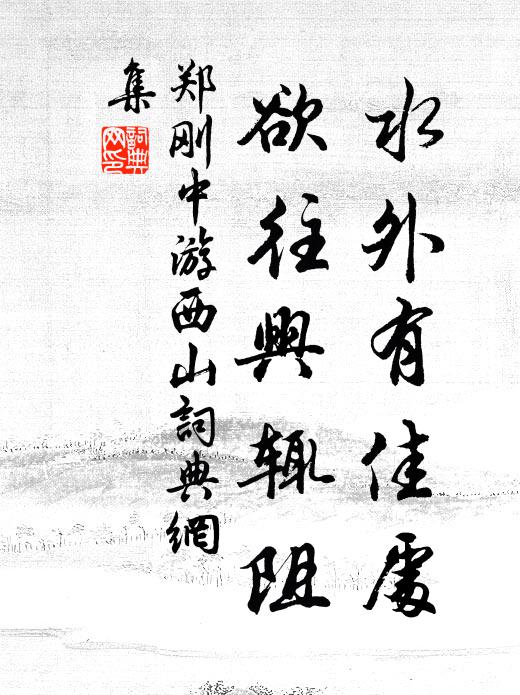 水外有佳處
欲往興辄阻
郑刚中游西山詞典網
集
詞典
网印